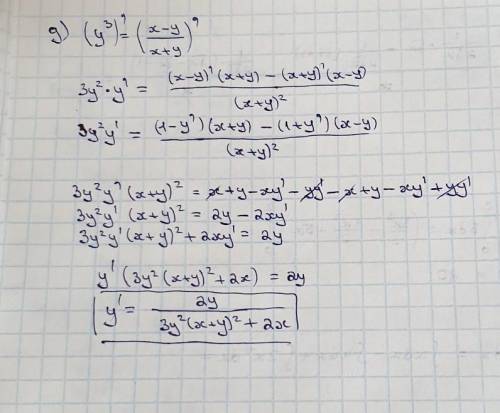 g) (y³)' = ((x-y)/(x+y))'
3y²·y' = ((x-y)'(x+y) - (x+y)'(x-y))/(x+y)²
3y²y' = ((1-y')(x+y) - (1+y')(x-y))/(x+y)²
3y²y'(x+y)² = x+y-xy'-yy'-x+y-xy'+yy'
3y²y'(x+y)² = 2y-2xy'
3y²y'(x+y)²+2xy' = 2y
y'(3y²(x+y)²+2x) = 2y
y' = 2y/(3y²(x+y)²+2x)